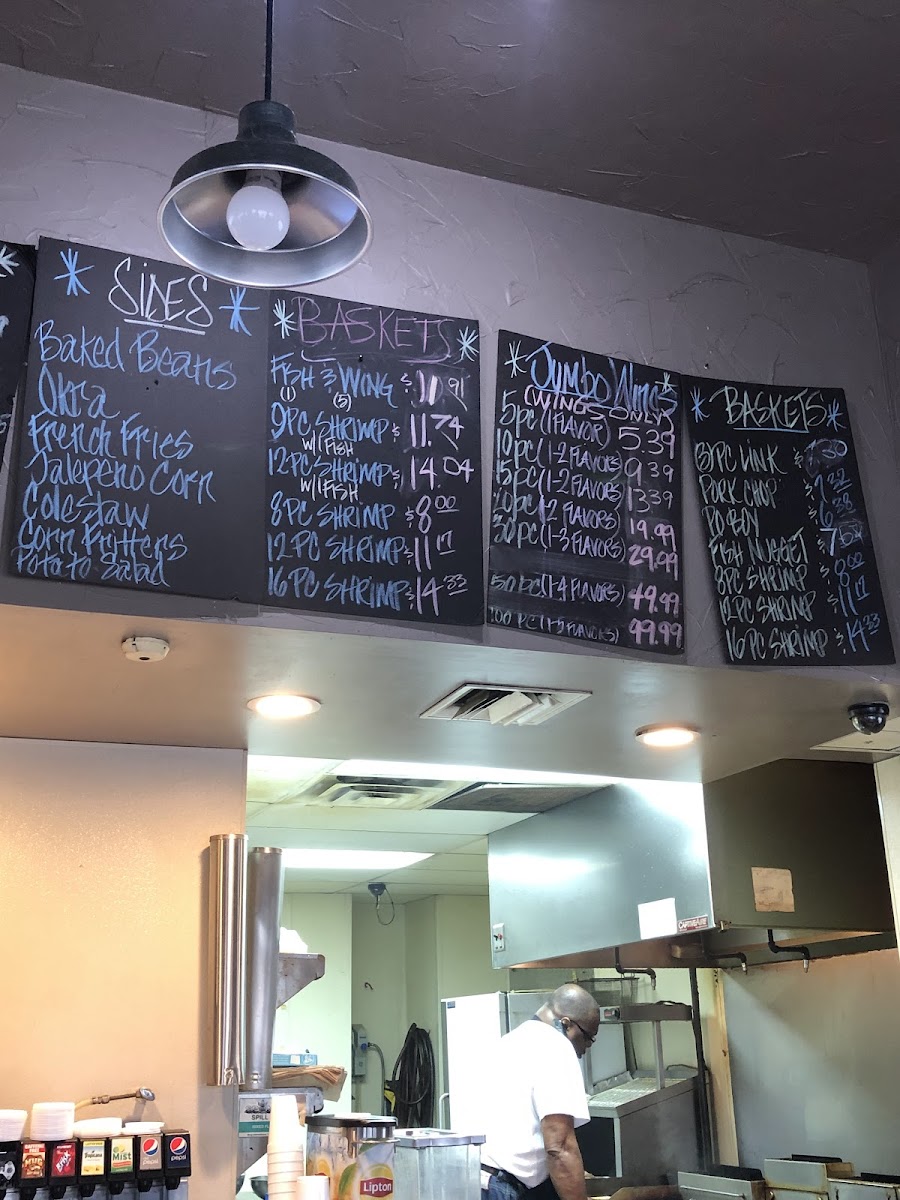 SIDES
Baked Beans
Okra
French Fries
Jalepeno Corn
Coleslaw
Corn Fritters
Potato Salad
BASKETS
FISH & WING $ 11.91
(1) (5)
9PC SHRIMP $ 11.74
W/1 FISH
12PC SHRIMP $ 14.04
W/1 FISH
8PC SHRIMP $8.00
12PC SHRIMP $11.17
16PC SHRIMP $14.33
Jumbo Wings
(WINGS ONLY)
5pc (1 FLAVOR) 5.39
10pc (1-2 FLAVORS) 9.39
15pc (1-2 FLAVORS) 13.39
20pc (2 FLAVORS) 19.99
30pc (1-3 FLAVORS) 29.99
50pc (1-4 FLAVORS) 49.99
100 PC (1-5 FLAVORS) 99.99
BASKETS
3PC LINK $7.30
PORK CHOP $7.32
PO BOY $6.38
FISH NUGGET $7.52
8PC SHRIMP $8.00
12PC SHRIMP $11.17
16PC SHRIMP $14.33
CAPTIVEAIRE
SPILL
MUG
Tropicana
Mist
pepsi
pepsi
Lipton